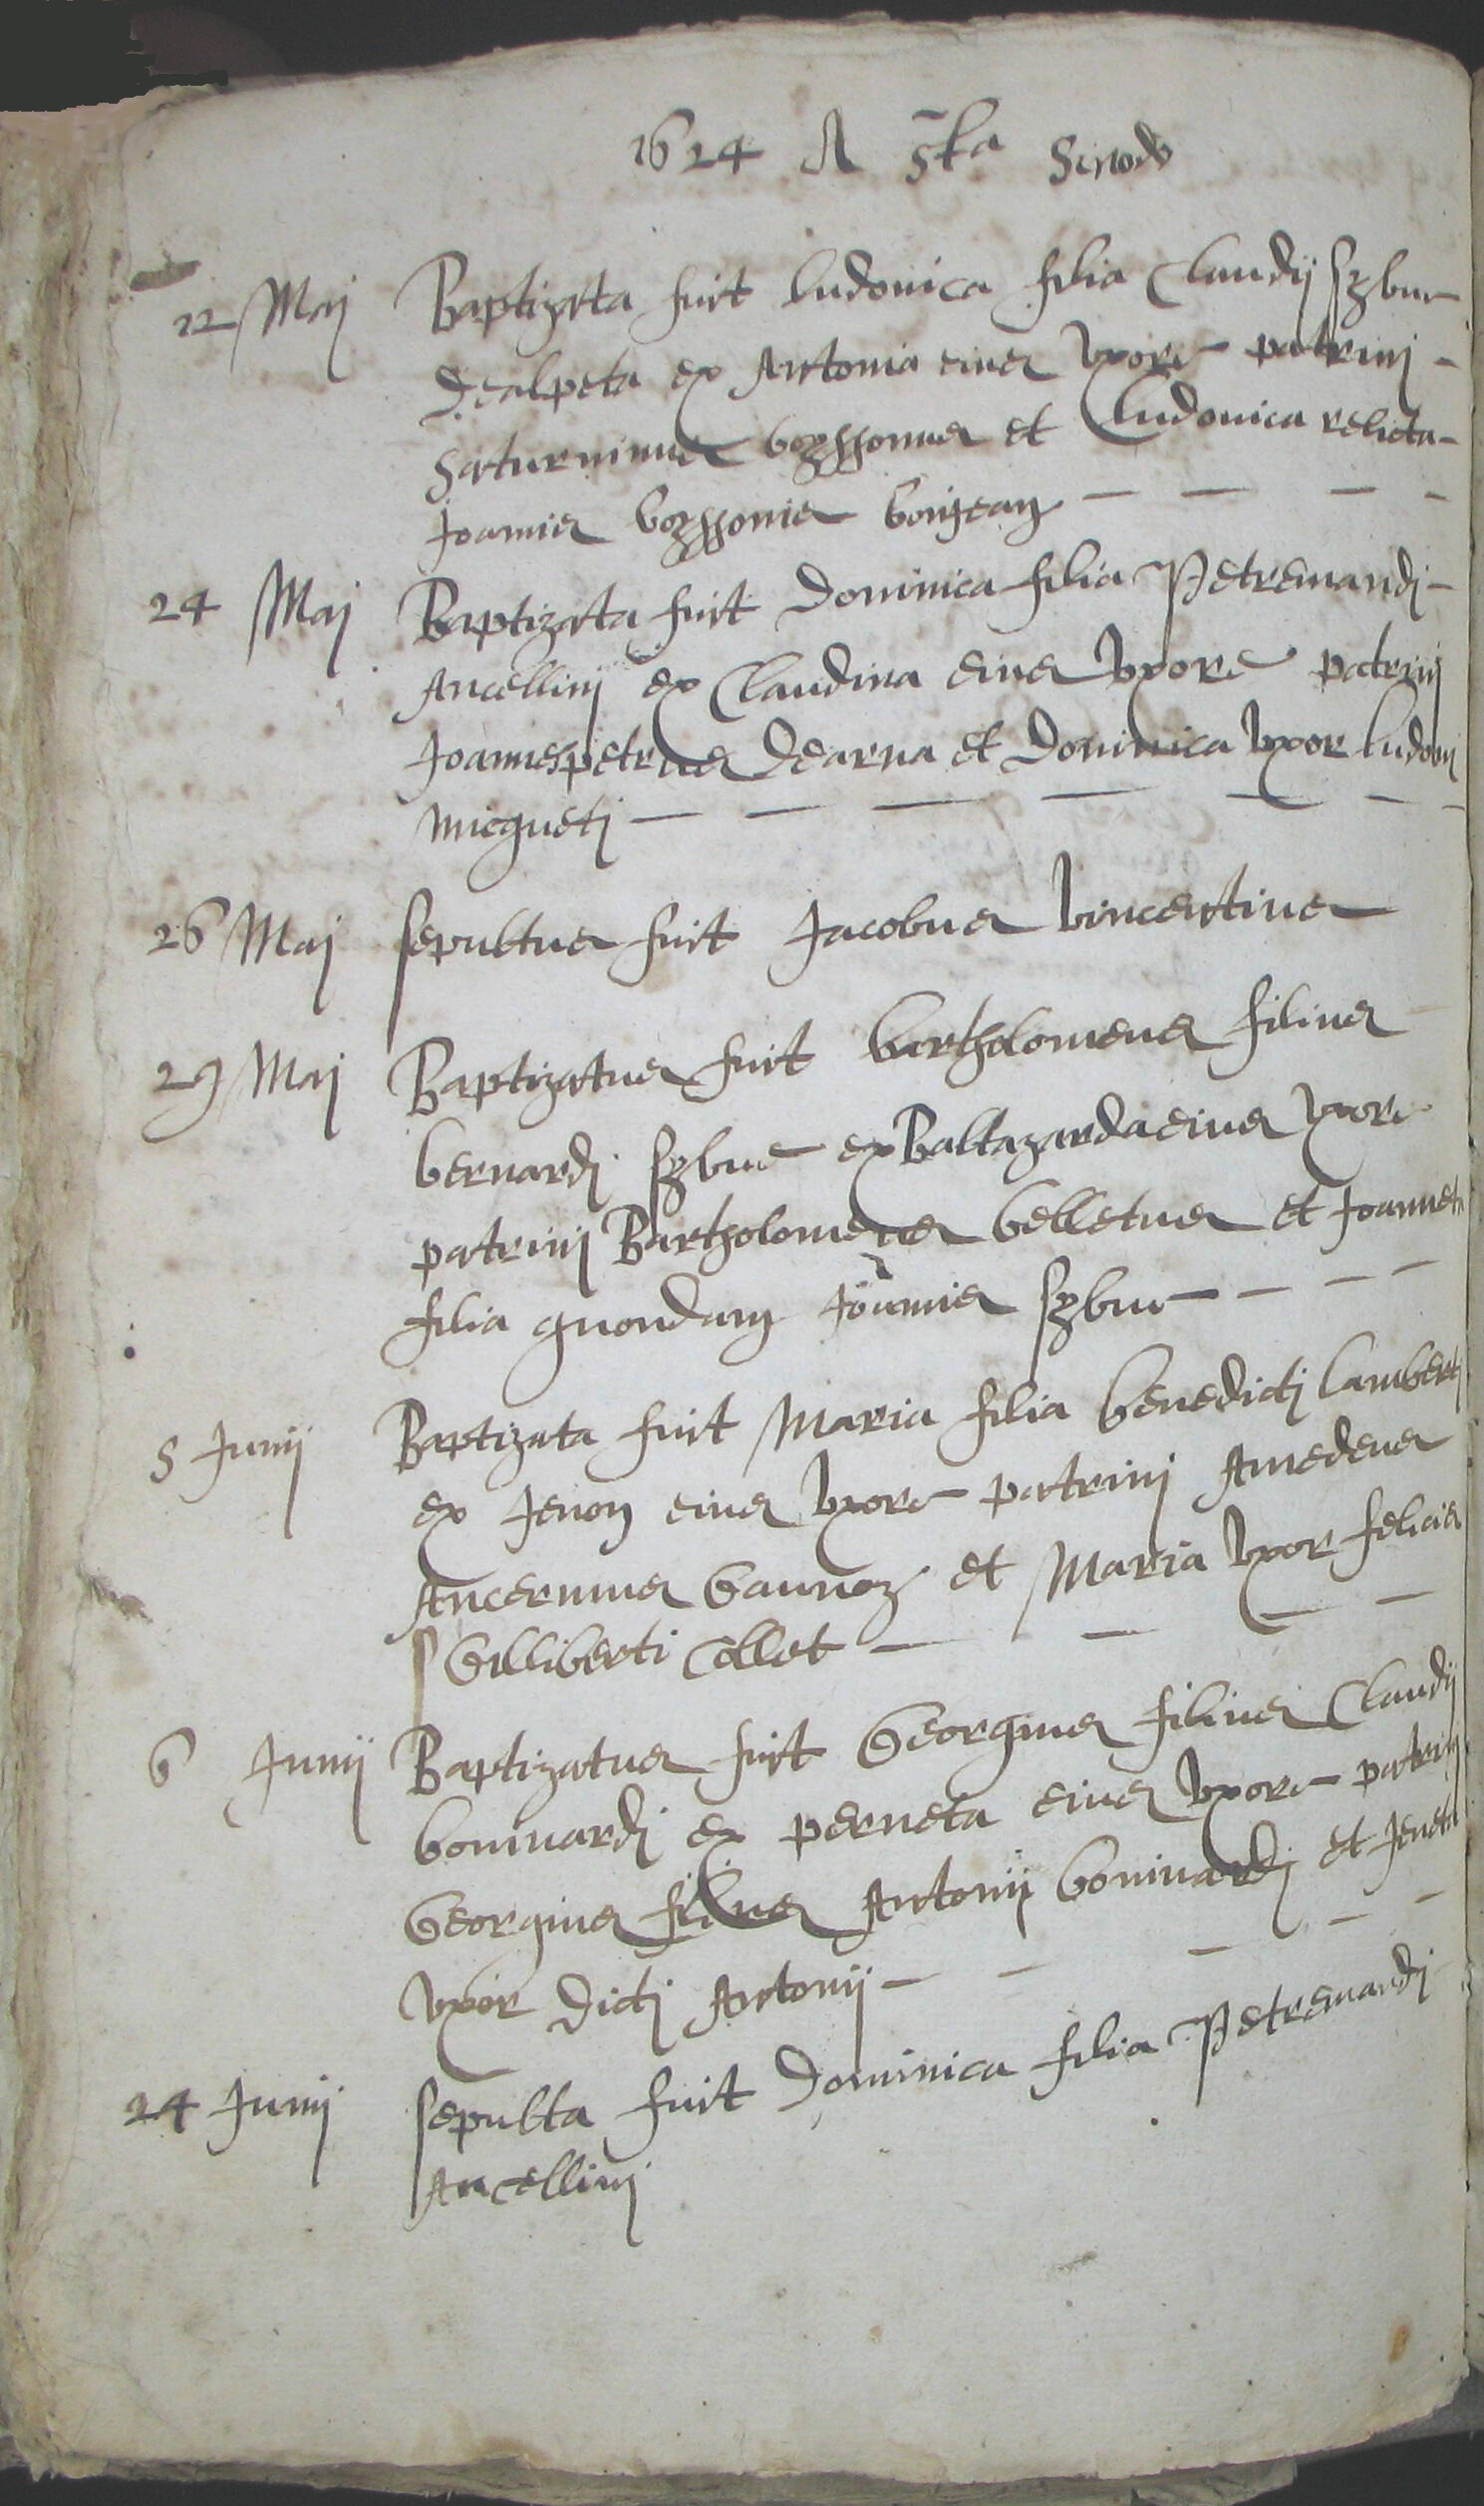 1624 A Sta Sinodo
12 Maij Baptizata fuit Ludovica filia Claudij
Dealpeta ex Antonia eius uxore patrinj
Saturninus bossonus et Ludovica relicta
Joannis bossonis
24 Maij Baptizata fuit Dominica filia Petremandj
Ancellinj ex Claudina eius uxore patrinj
Joannespetrus Dearna et Dominica uxor Ludovi
micquetj
26 Maij sepultus fuit Jacobus vincentius
29 Maij Baptizatus fuit bartholomeus filius
bernardj ex Baltazarda eius uxore
patrinj Bartholomeus belletus et Joanneta
filia quondam Joannis
5 Junij Baptizata fuit Maria filia benedictj Lambertj
ex Jenon eius uxore patrinj Amedeus
Ancerninus et Maria uxor felicis
Gilliberti Collet
6 Junij Baptizatus fuit Georgius filius Claudij
bonivardj ex perneta eius uxore patrinj
Georgius filius Antonij bonivardj et Jeneta
uxor dictj Antonij
24 Junij sepulta fuit Dominica filia Petremandj
Ancellinj